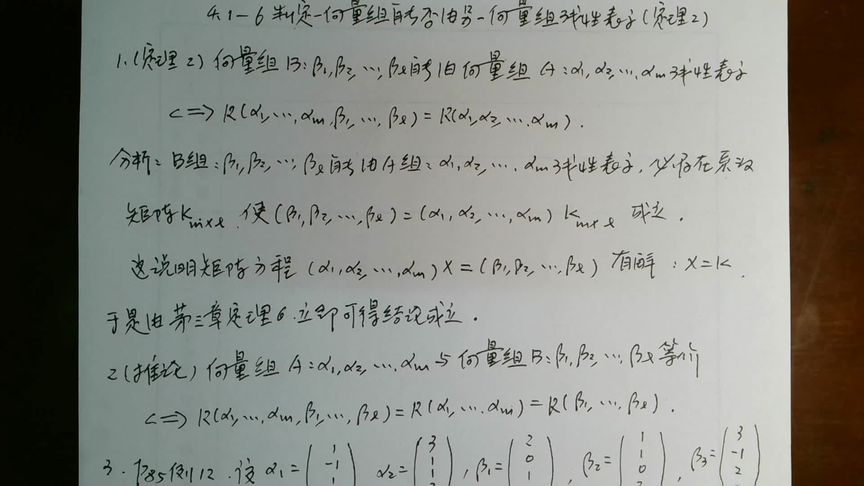 4.1-6 判定一向量组能否由另一向量组线性表示(定理2)
1.(定理2) 向量组 B:β₁,β₂,…,βℓ能由向量组 A:α₁,α₂,…,αm线性表示
<=> R(α₁,…,αm,β₁,…,βℓ)=R(α₁,α₂,…,αm).
分析:B组:β₁,β₂,…,βℓ能由A组:α₁,α₂,…,αm线性表示,必存在系数
矩阵Km×ℓ,使(β₁,β₂,…,βℓ)=(α₁,α₂,…,αm) Km×ℓ 成立.
这说明矩阵方程 (α₁,α₂,…,αm)X=(β₁,β₂,…,βℓ) 有解:X=K.
于是由第三章定理6,立即可得结论成立.
2(推论) 向量组 A:α₁,α₂,…,αm与向量组B:β₁,β₂,…,βℓ等价
<=> R(α₁,…,αm,β₁,…,βℓ)=R(α₁,…,αm)=R(β₁,…,βℓ).
3. P85例12.设 α₁=(1 -1 1 α₂=(3 1 1, β₁=(2 0 1, β₂=(1 1 0, β₃=(3 -1 2